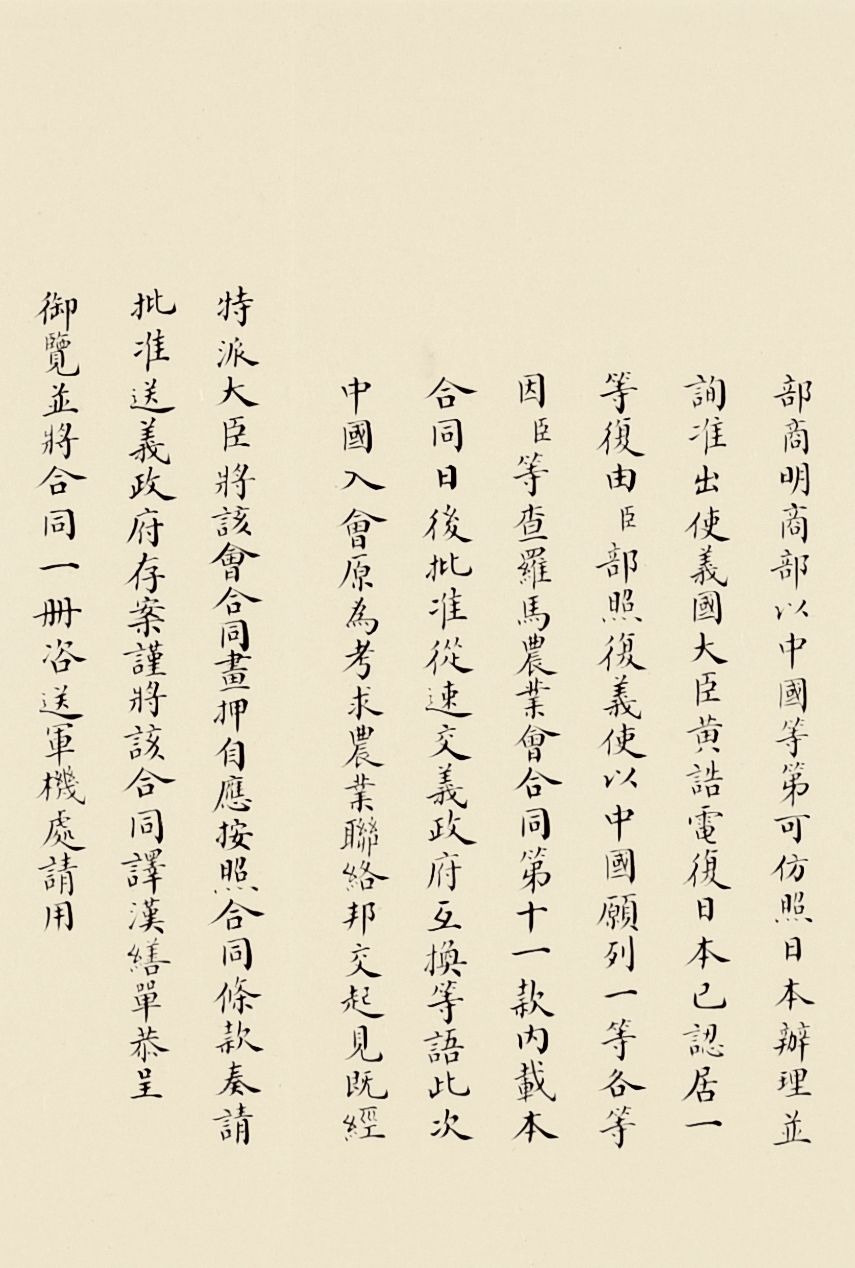 部商明商部以中國等第可仿照日本辦理並
詢准出使義國大臣黄誥電復日本已認居一
等復由臣部照復義使以中國願列一等各等
因臣等查羅馬農業會合同第十一款内載本
合同日後批准從速交義政府互換等語此次
中國入會原為考求農業聯絡邦交起見既經
特派大臣將該會合同畫押自應按照合同條款奏請
批准送義政府存案謹將該合同譯漢繕單恭呈
御覽並將合同一册咨送軍機處請用